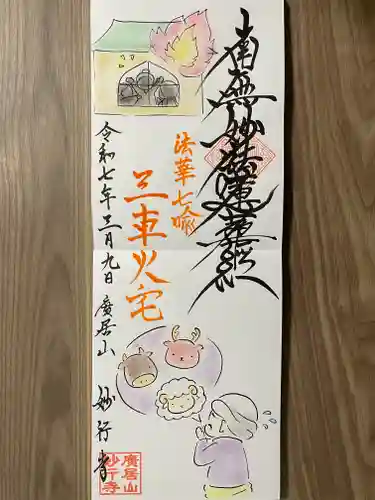 南無妙法蓮華経
法華七喩
三車火宅
令和七年三月九日 廣居山 妙行寺
廣居山
妙行寺